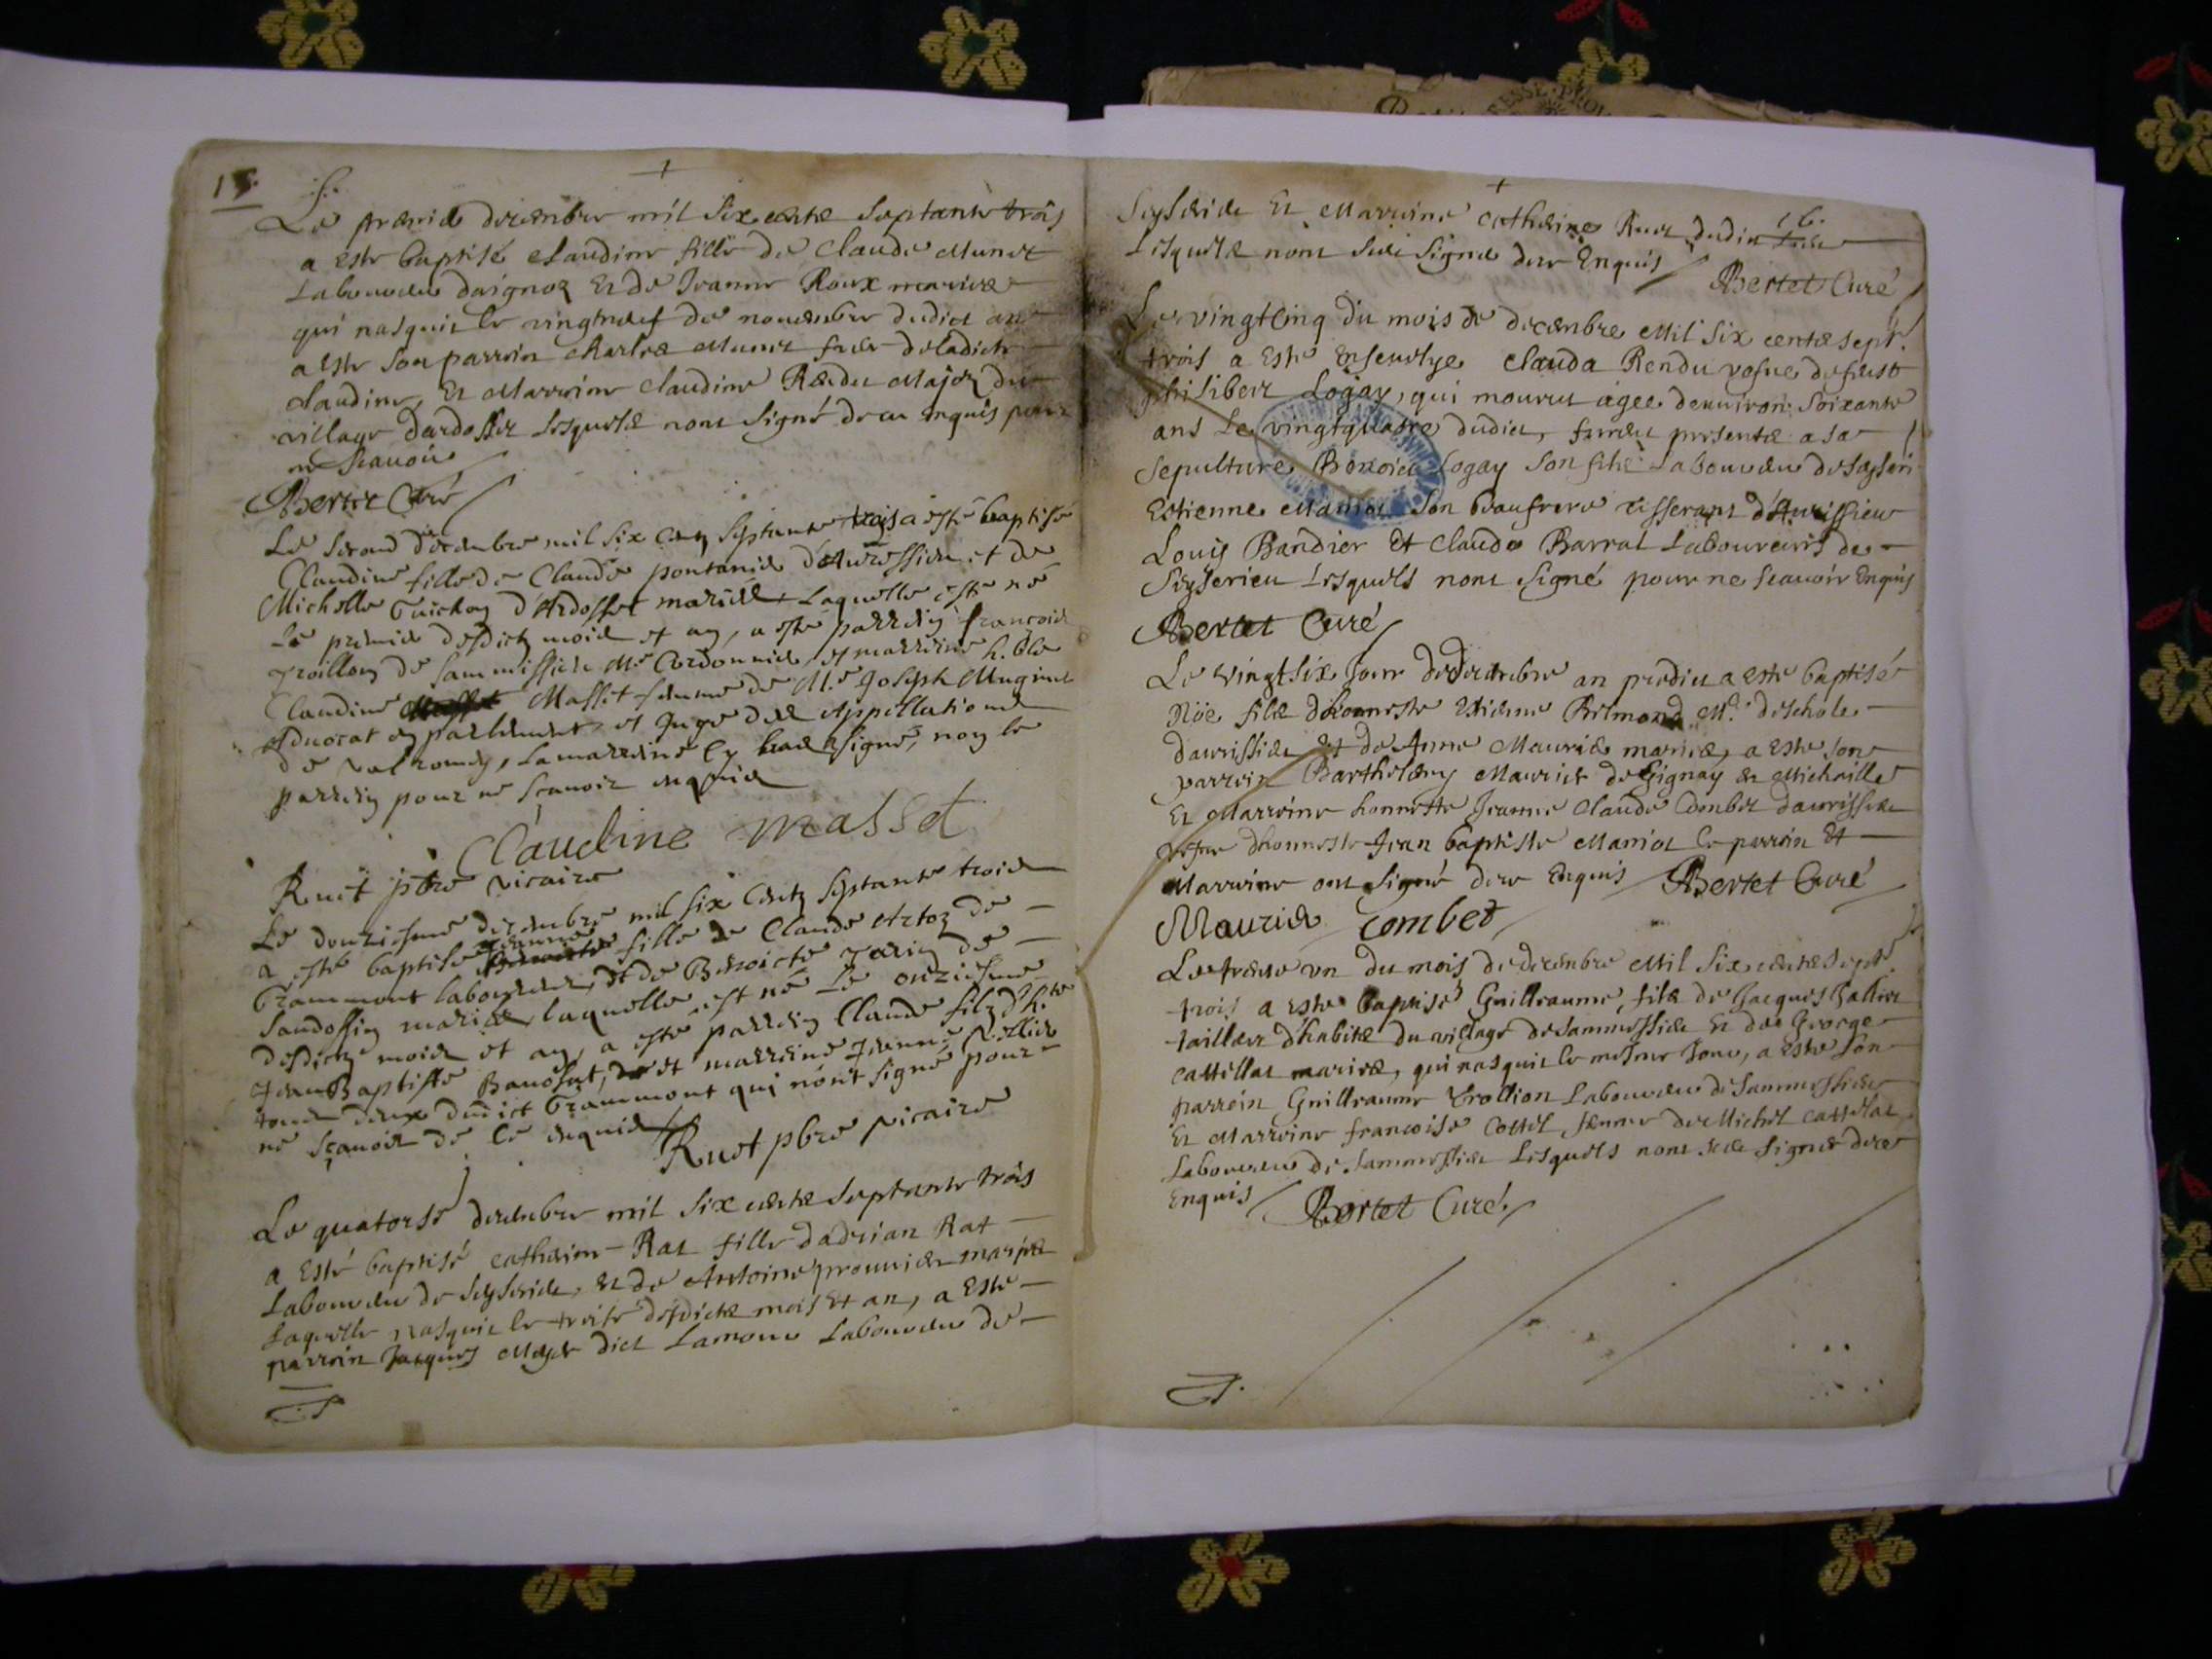 15.
Le premier decembre mil six cents septante trois
a este baptisé Claudine fille de Claude Munet
Laboureur et de Jeanne Roux mariez
qui nasquit le vingtneuf de novembre dudict an
a este son parroin Charles Munet frere de ladicte
Claudine, Et Marroine Claudine Rendu du
village dardosset lesquels nont signé de ce enquis pour
ne scavoir
Bertet Curé
Le second decembre mil six centz septante trois a esté baptisé
Claudine fille de Claude pontanier d'Auressieu et de
Michelle Guichon d'Ardosset mariés Laquelle est né
Le premier desdictz mois et an, a esté parrein francois
de sammissieu Me Cordonnier et marreine h.ble
Claudine Masset femme de M.e Joseph Mugnier
Advocat en parlement, et Juge des Appellations
de valromey, La marreine cy bas a signé, non le
parrein pour ne scavoir enquis
Claudine Masset
Ruet pbre vicaire
Le douziesme decembre mil six centz septante trois
a esté baptisé Jeanne fille de Claude Artoz de
Grammont laboureur, et de Benoicte de
mariez, laquelle est né Le onziesme
desdictz mois et an, a esté parrein Claude filz d'h.te
Jean Baptiste et marreine Jeanne
tous deux dudict Grammont qui n'ont signé pour
ne sçavoir de ce enquis
Ruet pbre vicaire
Le quatorse decembre mil six cents septante trois
a Esté baptisé catherine Rat fille dadrian Rat
Laboureur de Seyserieu, Et de Antoine mariez
Laquelle nasquit le treise desdicts mois Et an, a Este
parroin Jacques dict Lamour Laboureur de
16.
Seyserieu Et Marroine Catherine Ruet dudict lieu
Lesquels nont sceu signer dece Enquis Bertet Curé
Le vingtcinq du mois de decembre Mil six cents sept.
trois a Este Ensevelye Clauda Rendu vesve defeust
philibert Logay, qui mourut agee denviron soixante
ans Le vingtquatre dudict, furent presents a sa
sepulture Benoict Logay son fils Laboureur de
Estienne son beaufrere tisserant
Louis Bandier Et Claude Barrat Laboureurs de
Seyserieu Lesquels nont signé pour ne scavoir Enquis
Bertet Curé
Le vingt six Jour dedecembre an predict a este baptisé
Nöe fils dhonneste Estienne Brimond M.e deschole
daurissieu Et de Anne Maurier mariez, a este son
parroin Barthelemy Maurier de Gignay en Michaille
Et Marroine honneste Jeanne Claude Combet daurissieu
vesve dhonneste Jean baptiste le parroin Et
Marroine ont signé dece Enquis Bertet Curé
Maurier Combet
Le trente un du mois dedecembre Mil six cents sept.
trois a Este baptisé Guillaume, fils de Jacques
tailleur dhabits du village desammessieu Et de George
Cattillat mariez, qui nasquit le mesme Jour, a Este son
parroin Guillaume Laboureur de Sammessieu
Et Marroine francoise femme de Michel
Laboureur de Sammessieu Lesquels nont sceu signer dece
Enquis Bertet Curé